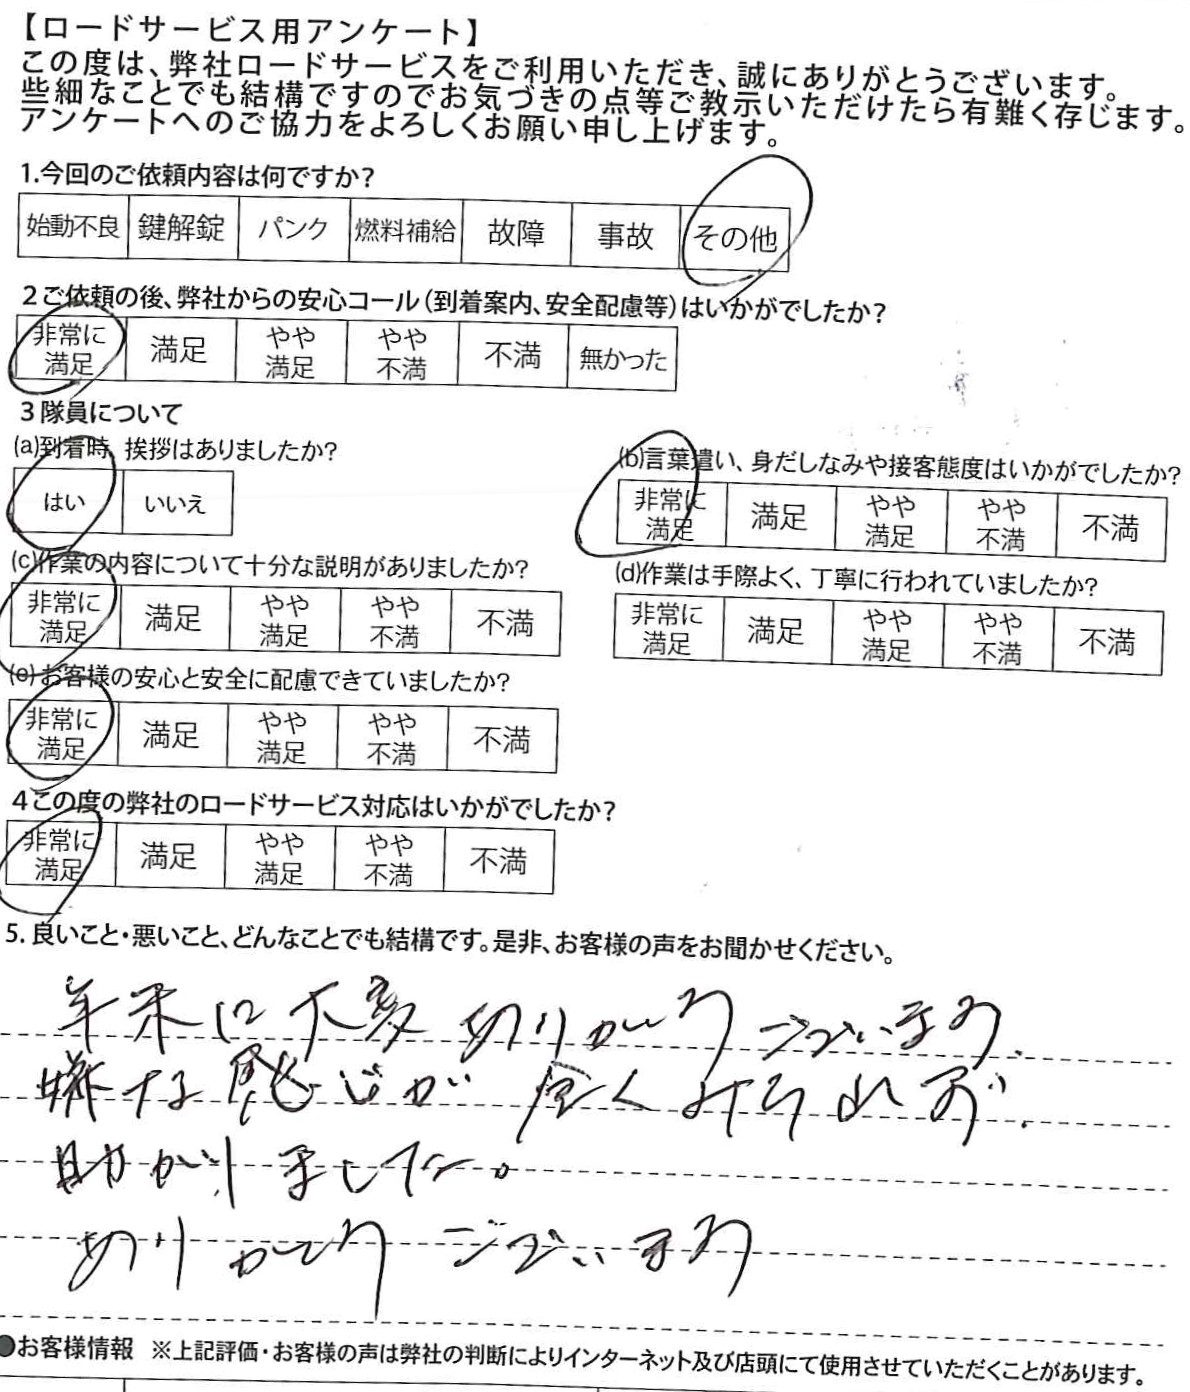 【ロードサービス用アンケート】
この度は、弊社ロードサービスをご利用いただき、誠にありがとうございます。
些細なことでも結構ですのでお気づきの点等ご教示いただけたら有難く存じます。
アンケートへのご協力をよろしくお願い申し上げます。
1.今回のご依頼内容は何ですか?
始動不良 鍵解錠 パンク 燃料補給 故障 事故 その他
2ご依頼の後、弊社からの安心コール(到着案内、安全配慮等)はいかがでしたか?
非常に満足 満足 やや満足 やや不満 不満 無かった
3隊員について
(a)到着時、挨拶はありましたか?
はい いいえ
(b)言葉遣い、身だしなみや接客態度はいかがでしたか?
非常に満足 満足 やや満足 やや不満 不満
(c)作業の内容について十分な説明がありましたか?
非常に満足 満足 やや満足 やや不満 不満
(d)作業は手際よく、丁寧に行われていましたか?
非常に満足 満足 やや満足 やや不満 不満
(e)お客様の安心と安全に配慮できていましたか?
非常に満足 満足 やや満足 やや不満 不満
4この度の弊社のロードサービス対応はいかがでしたか?
非常に満足 満足 やや満足 やや不満 不満
5.良いこと・悪いこと、どんなことでも結構です。是非、お客様の声をお聞かせください。
年末に大変ありがとうございます.
嫌な感じが全くみられず.
助かりました。
ありがとうございます
●お客様情報 ※上記評価・お客様の声は弊社の判断によりインターネット及び店頭にて使用させていただくことがあります。